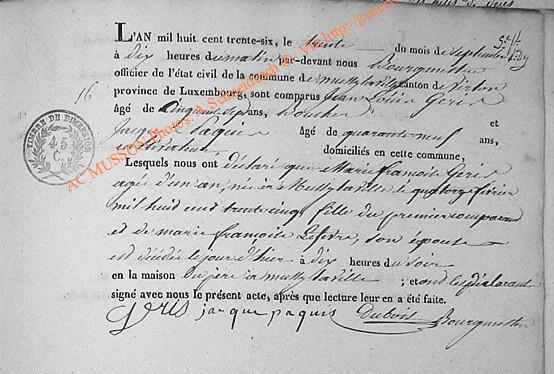 L'AN mil huit cent trente-six, le trente du mois de septembre
à dix heures du matin par-devant nous Bourgmestre
officier de l'état civil de la commune de mussy la ville canton de Virton
province de Luxembourg, sont comparus Jean Louis Geris
16
âgé de cinquante sept ans, et
Jacques Paquis âgé de quarante neuf ans,
cultivateur domiciliés en cette commune,
Lesquels nous ont déclaré que Marie françoise Geris
agée d'un an, née à Mussy la ville le quatorze février
mil huit cent trente cinq, fille du premier comparant
et de marie françoise Lefevre, son épouse
est décédée le jour d'hier à dix heures du soir
en la maison du père à mussy la ville ; et ont les déclarants
signé avec nous le présent acte, après que lecture leur en a été faite.
geris jacque paquis Dubois Bourgmestre
TIMBRE DE DIMENSION
45
C.
AC MUSSON Photos: A. Schneidesch © Via: http://gene